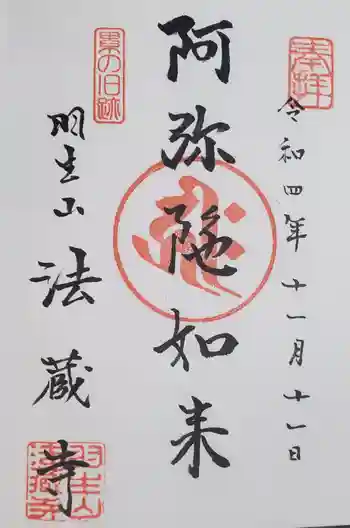 奉拝
令和四年十一月十一日
阿弥陀如来
累の旧跡
羽生山 法蔵寺
羽生山
法蔵寺